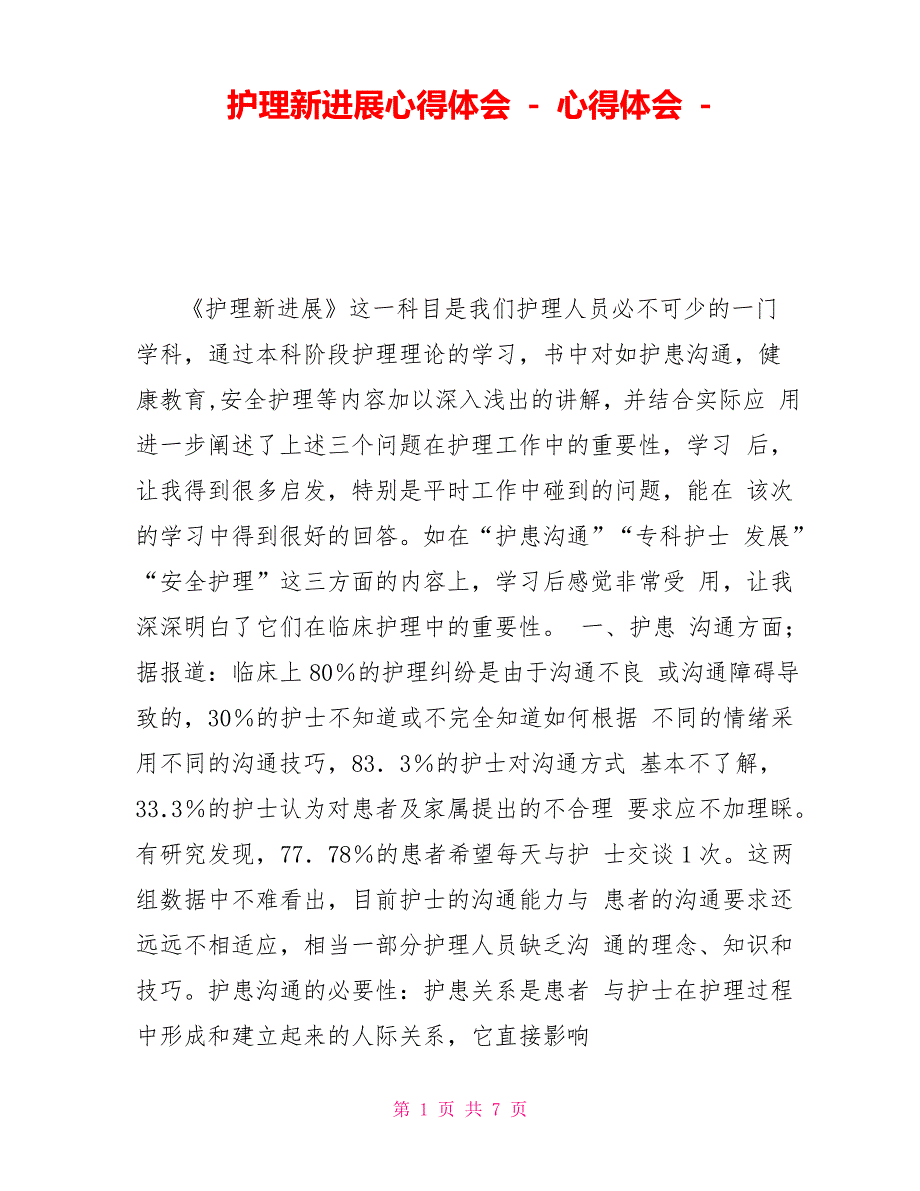 护理新进展心得体会 - 心得体会 -
《护理新进展》这一科目是我们护理人员必不可少的一门
学科，通过本科阶段护理理论的学习，书中对如护患沟通，健
康教育,安全护理等内容加以深入浅出的讲解，并结合实际应 用
进一步阐述了上述三个问题在护理工作中的重要性，学习 后，
让我得到很多启发，特别是平时工作中碰到的问题，能在 该次
的学习中得到很好的回答。如在“护患沟通”“专科护士 发展”
“安全护理”这三方面的内容上，学习后感觉非常受 用，让我
深深明白了它们在临床护理中的重要性。 一、护患 沟通方面；
据报道：临床上 80%的护理纠纷是由于沟通不良 或沟通障碍导
致的，30%的护士不知道或不完全知道如何根据 不同的情绪采
用不同的沟通技巧，83．3%的护士对沟通方式 基本不了解，
33.3%的护士认为对患者及家属提出的不合理 要求应不加理睬。
有研究发现，77．78%的患者希望每天与护 士交谈 1 次。这两
组数据中不难看出，目前护士的沟通能力与 患者的沟通要求还
远远不相适应，相当一部分护理人员缺乏沟 通的理念、知识和
技巧。护患沟通的必要性：护患关系是患者 与护士在护理过程
中形成和建立起来的人际关系，它直接影响
第 1 页 共 7 页